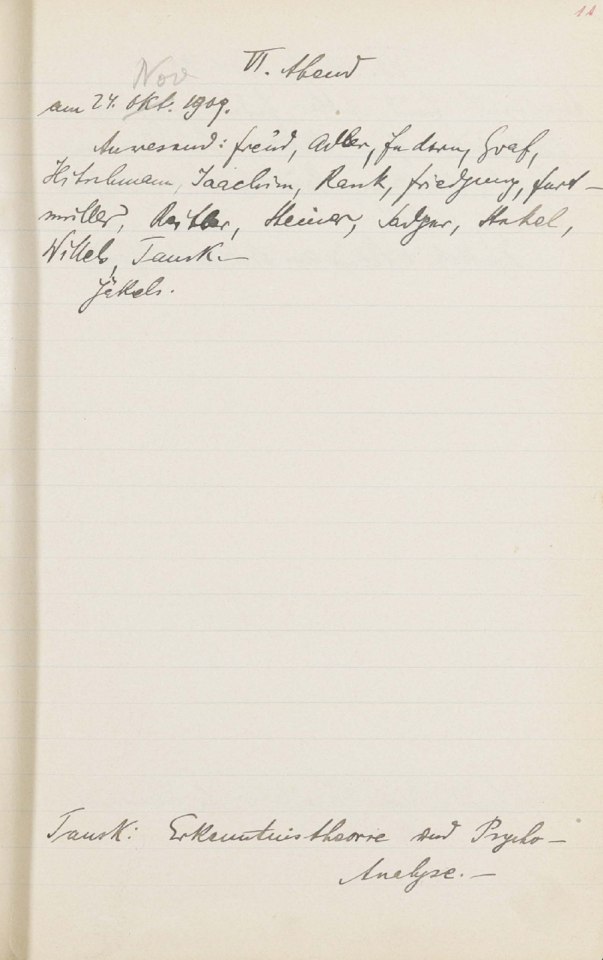 11
Nov
VI. Abend
am 24. Okt. 1909.
Anwesend: Freud, Adler, Federn, Graf,
Hitschmann, Joachim, Rank, Friedjung, Furt-
müller, Reitler, Steiner, Sadger, Stekel,
Wittels, Tausk. —
Jekels.
Tausk: Erkenntnistheorie und Psycho-
Analyse. —